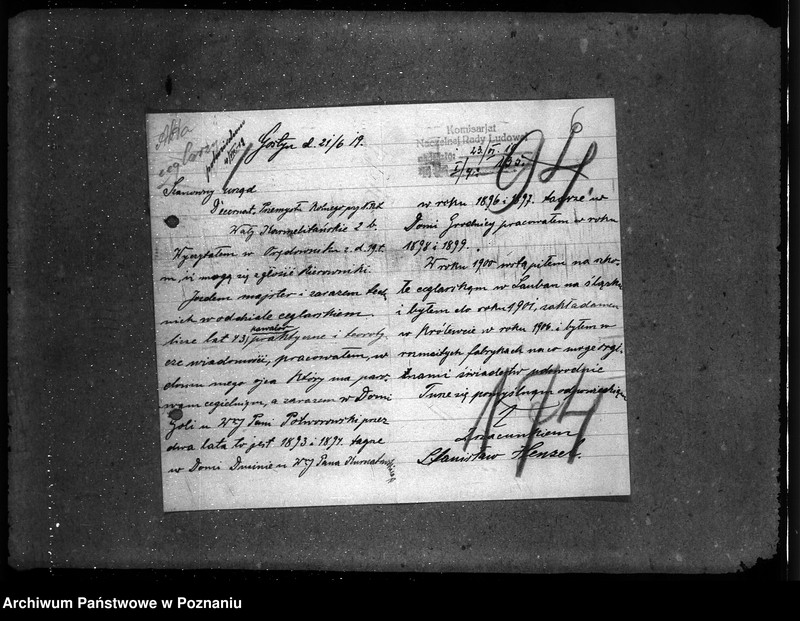 Akta
Gostyn d. 21/6 19.
Komisarjat
Naczelnej Rady Ludowej
23/VI 19
94
Szanowny Urząd
Decernat Przemysłu Rolnego przy N.R.L
Wały Karmelitańskie 2 b.
Wyczytałem w Orędowniku z d. 19. t.
m, iż mogą się zgłosić kierowniki.
Jezdem majster i zarazem tech
nick w oddziale ceglarskiem
licze lat 43, kawaler praktyczne i teorety
cze wiadomości, pracowałem, w
domu mego ojca który ma par-
wom cegielnią, a zarazem w Domi
Goli u WJ Pani Potworowski przez
dwa lata to jest 1893 i 1894. tagze
w Domi Dusinie u WJ Pana
w roku 1896 i 1897. tagrze w
Domi Grodnicy pracowałem w roku
1898 i 1899.
W roku 1900 wstąpiłem na szko-
łe ceglarską w Lauban na śląsku
i byłem do roku 1901, zakładamen
w Królewcie w roku 1906 i byłem w
rozmaitych fabrykach na co moge orgi-
nami świadectw potwordzić
Tusze się pomyślnym odpowiedzią
Z szacunkiem
Stanisław Hensel.
174
Archiwum Państwowe w Poznaniu